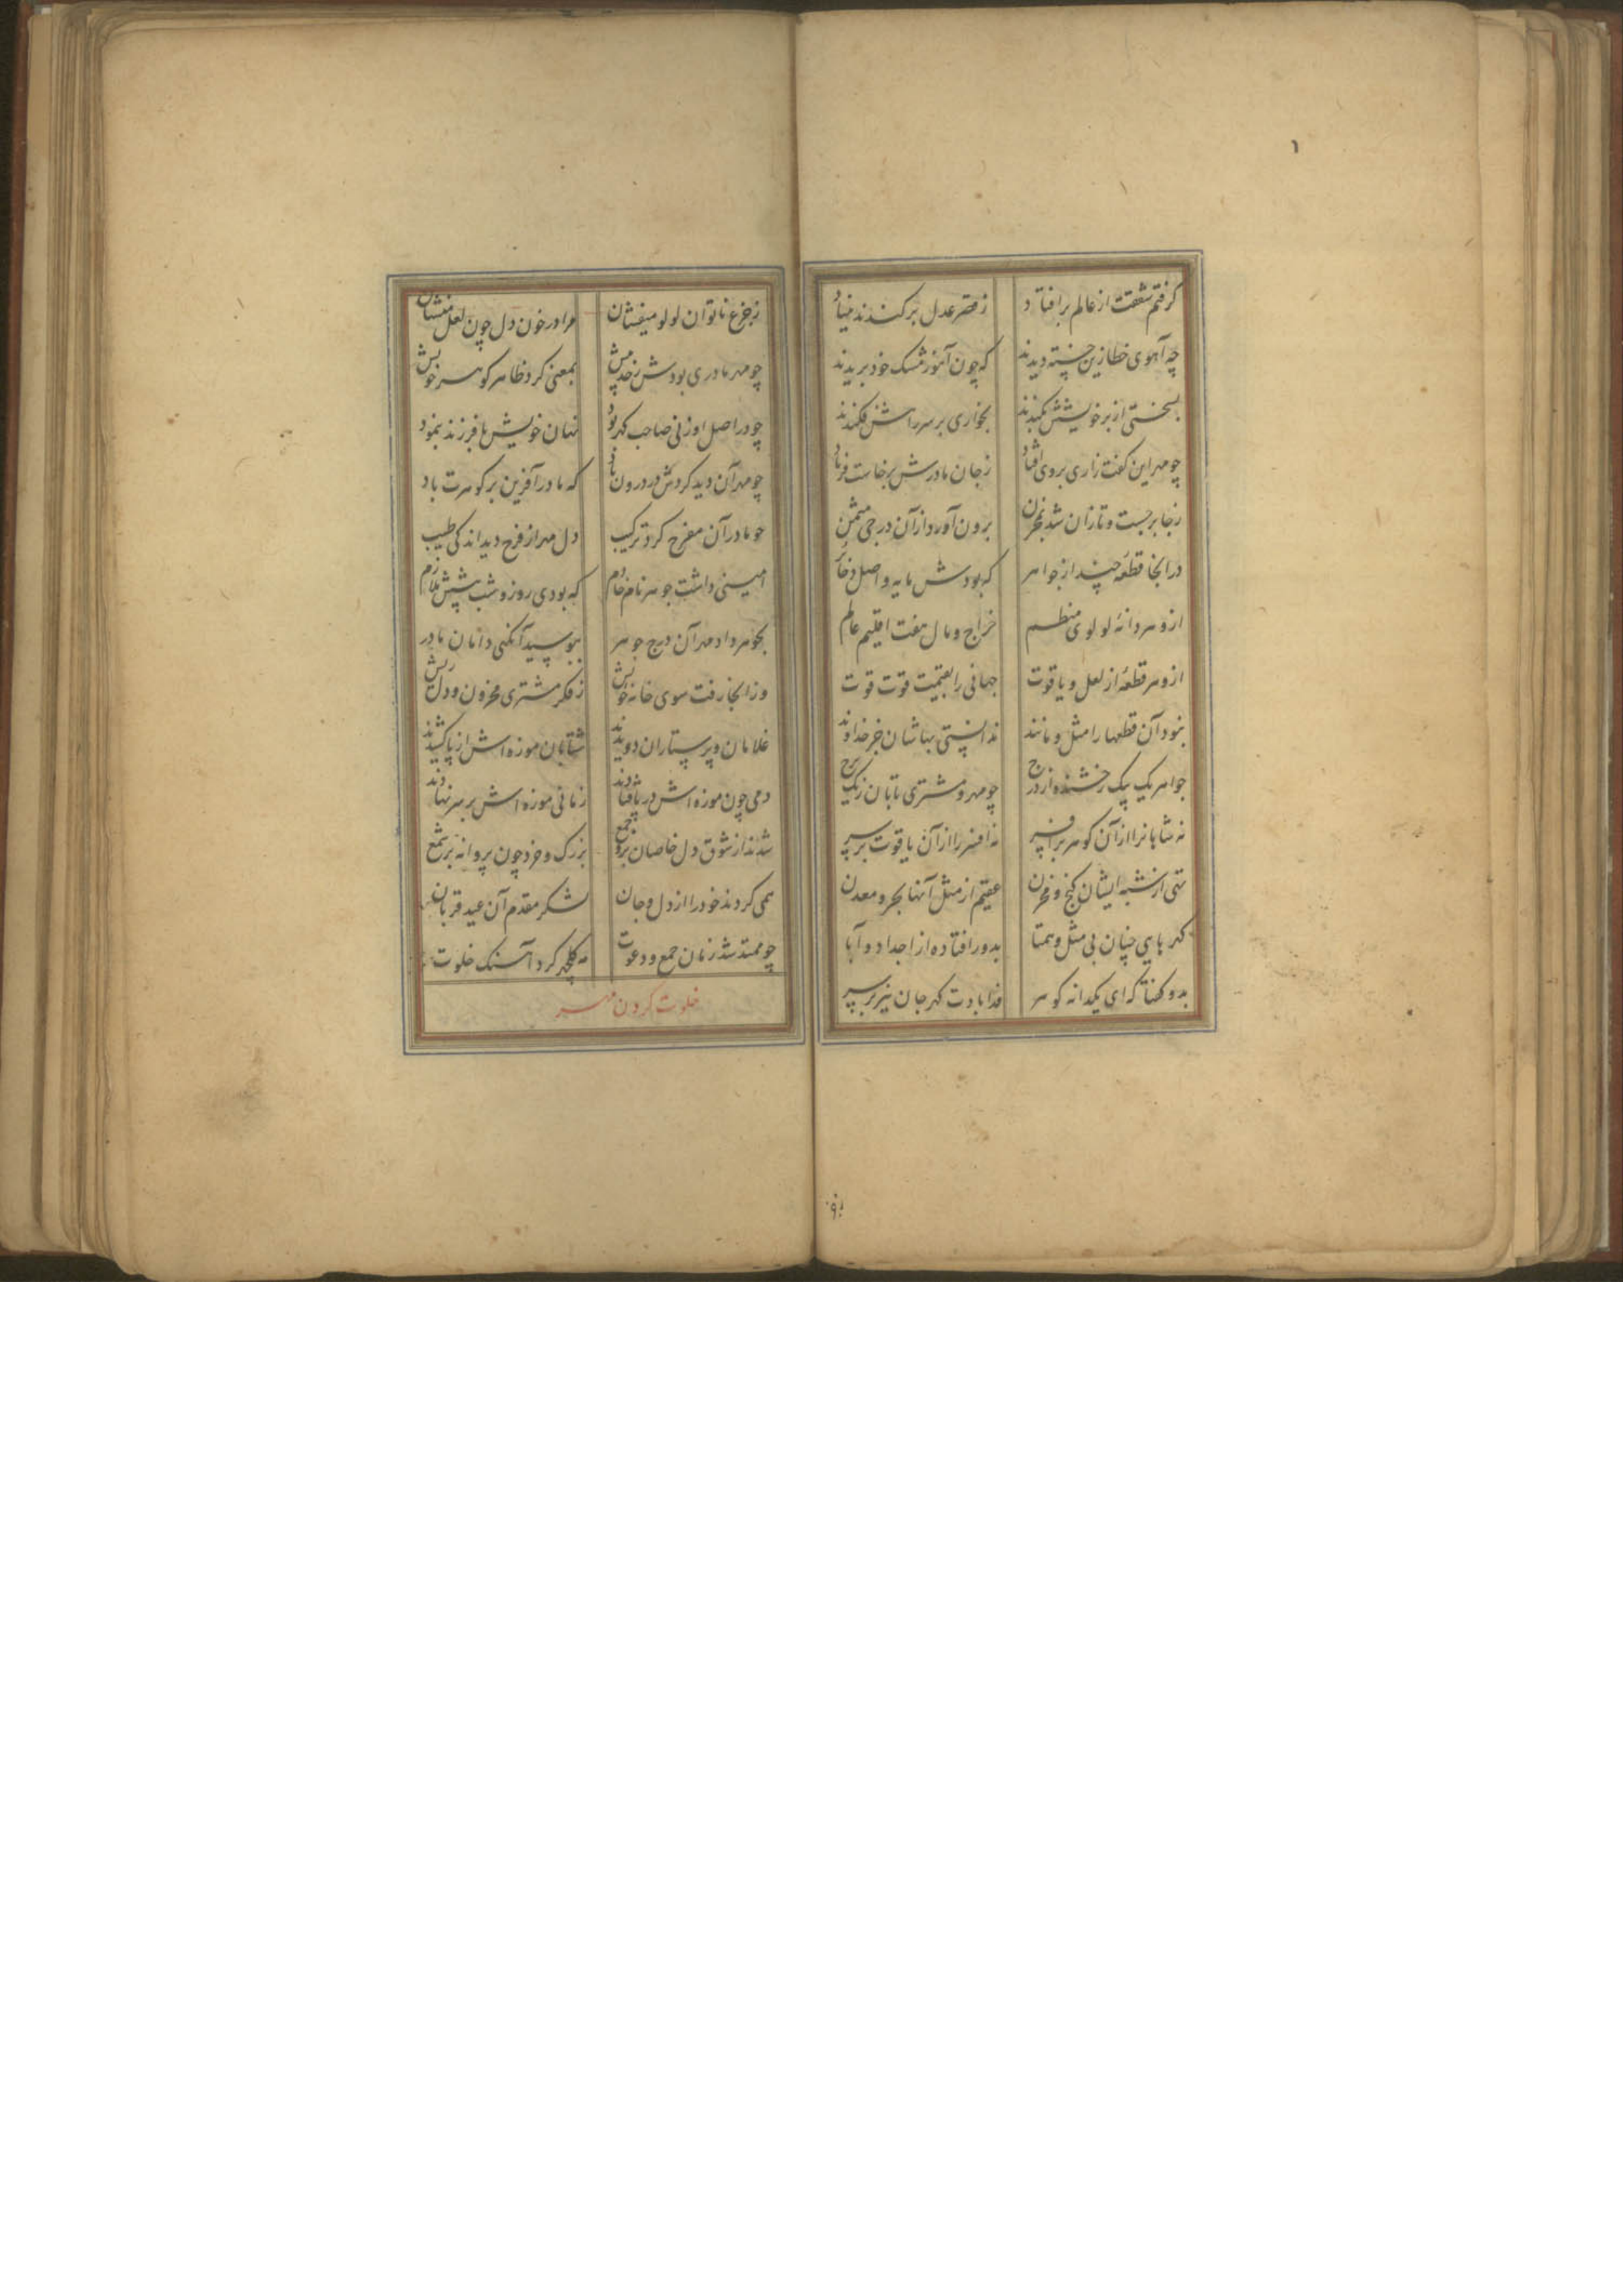 ۱
گرفتم شفقت از عالم برافتاد زقصر عدل برکندند بنیاد
چه آهوی خطا زین خسته دیدند که چون آهو زمشک خود بریدند
بسختی از بر خویشش بکندند بخواری بر سر راهش فکندند
چو مهر این گفت زاری بروی افتاد زجان مادرش برخاست فریاد
زجا برجست و تازان شد بمخزن برون آورد از آن درجی مثمن
در انجا قطعهٔ چند از جواهر که بودش مایه و اصل ذخائر
ازو هر دانهٔ لولوی منظم خراج و مال هفت اقلیم عالم
ازو هر قطعهٔ از لعل و یاقوت جهانی را بقیمت قوت قوت
نبود آن قطعها را مثل و مانند ندانستی بهاشان جز خداوند
جواهر یک بیک رخشنده از درج چو مهر و مشتری تابان زیک برج
نه شاهانرا از آن گوهر بر افسر نه افسر را از آن یاقوت بر سر
تهی از شبه ایشان گنج و مخزن عقیم از مثل آنها بحر و معدن
گهرهایی چنان بی مثل و همتا بدور افتاده از اجداد و آبا
بدو گفتا که ای یکدانه گوهر فدا بادت گهر جان نیز بر سر
زجزع ناتوان لولو میفشان مرا در خون دل چون لعل منشان
چو مهر مادری بودش زحد بیش بمعنی کرد ظاهر گوهر خویش
چو در اصل او زنی صاحب گهر بود نهان خویش با فرزند بنمود
چو مهر آن دید کردش در درون یاد که مادر آفرین بر گوهرت باد
چو مادر آن مفرح کرد ترکیب دل مهر از فرح دید اندکی طیب
امینی داشت جوهر نام خادم که بودی روز و شب پیشش ملازم
بجوهر داد مهر آن درج جوهر ببوسید آنگهی دامان مادر
وز انجا رفت سوی خانه خویش زفکر مشتری محزون و دل ریش
غلامان و پرستاران دویدند شتابان موزه اش از پا کشیدند
دمی چون موزه اش در پا فتادند زمانی موزه اش بر سر نهادند
شدند از شوق دل خاصان برو جمع بزرگ و خرد چون پروانه بر شمع
همی کردند خود را از دل و جان بشکر مقدم آن عید قربان
چو ممتد شد زمان جمع و دعوت مه گلچهر کرد آهنگ خلوت
خلوت کردن مهر